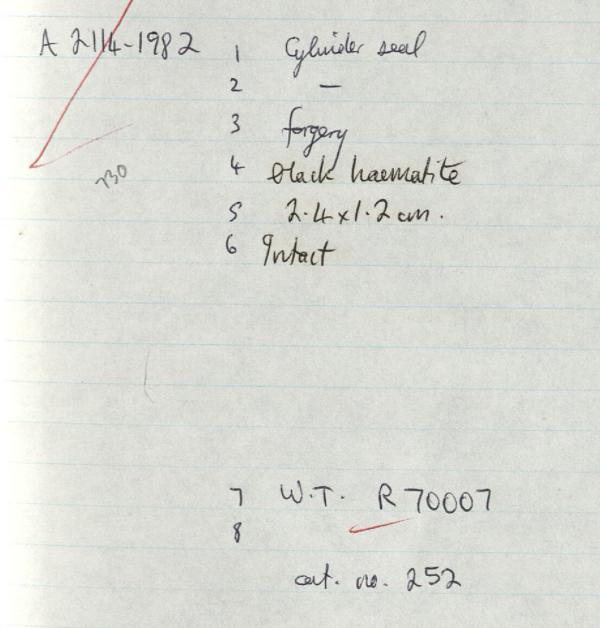 A 2114-1982 1 Cylinder seal
2 —
3 forgery
730
4 black haematite
5 2.4 x 1.2 cm.
6 Intact
7 W.T. R 70007
8
cat. no. 252